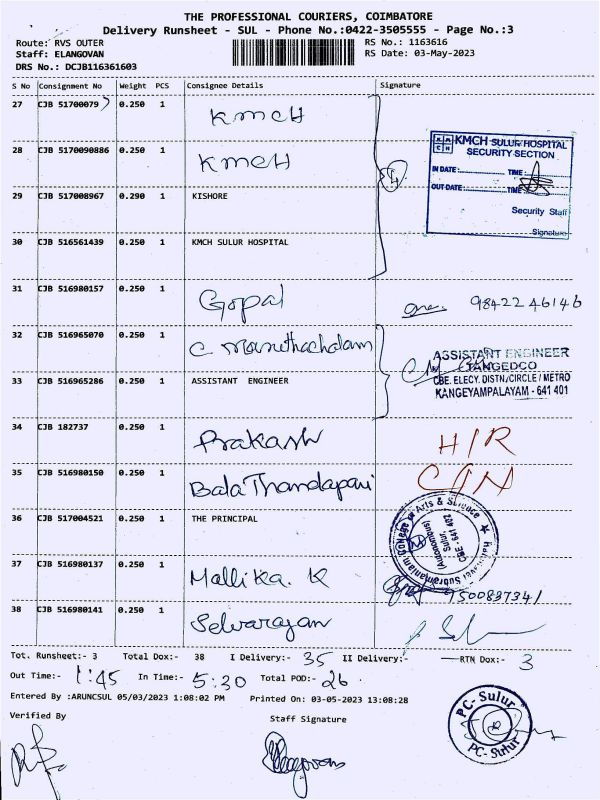 THE PROFESSIONAL COURIERS, COIMBATORE
Delivery Runsheet - SUL - Phone No.:0422-3505555 - Page No.:3
Route: RVS OUTER RS No.: 1163616
Staff: ELANGOVAN RS Date: 03-May-2023
DRS No.: DCJB116361603
S No Consignment No Weight PCS Consignee Details Signature
27 CJB 51700079 0.250 1 KMCH
28 CJB 5170090886 0.250 1 KMCH
KMCH SULUR HOSPITAL
SECURITY SECTION
IN DATE: TIME:
OUT DATE TIME
Security Staff
Signature
4
29 CJB 517008967 0.290 1 KISHORE
30 CJB 516561439 0.250 1 KMCH SULUR HOSPITAL
31 CJB 516980157 0.250 1 Gopal 98422 46146
32 CJB 516965070 0.250 1 C Maruthachalam
ASSISTANT ENGINEER
TANGEDCO
CBE. ELECY. DISTN/CIRCLE / METRO
KANGEYAMPALAYAM - 641 401
33 CJB 516965286 0.250 1 ASSISTANT ENGINEER
34 CJB 182737 0.250 1 Prakash H/R
35 CJB 516980150 0.250 1 Bala Thandapani C/N
36 CJB 517004521 0.250 1 THE PRINCIPAL
of Arts & Science
(Autonomous)
Sulur,
CBE - 641 402
37 CJB 516980137 0.250 1 Mallika. K
38 CJB 516980141 0.250 1 Selvarajan
Tot. Runsheet:- 3 Total Dox:- 38 I Delivery:- 35 II Delivery:- RTN Dox:- 3
Out Time:- 1:45 In Time:- 5:30 Total POD:- 26
Entered By :ARUNCSUL 05/03/2023 1:08:02 PM Printed On: 03-05-2023 13:08:28
Verified By Staff Signature
PC-Sulur
PC-Sulur